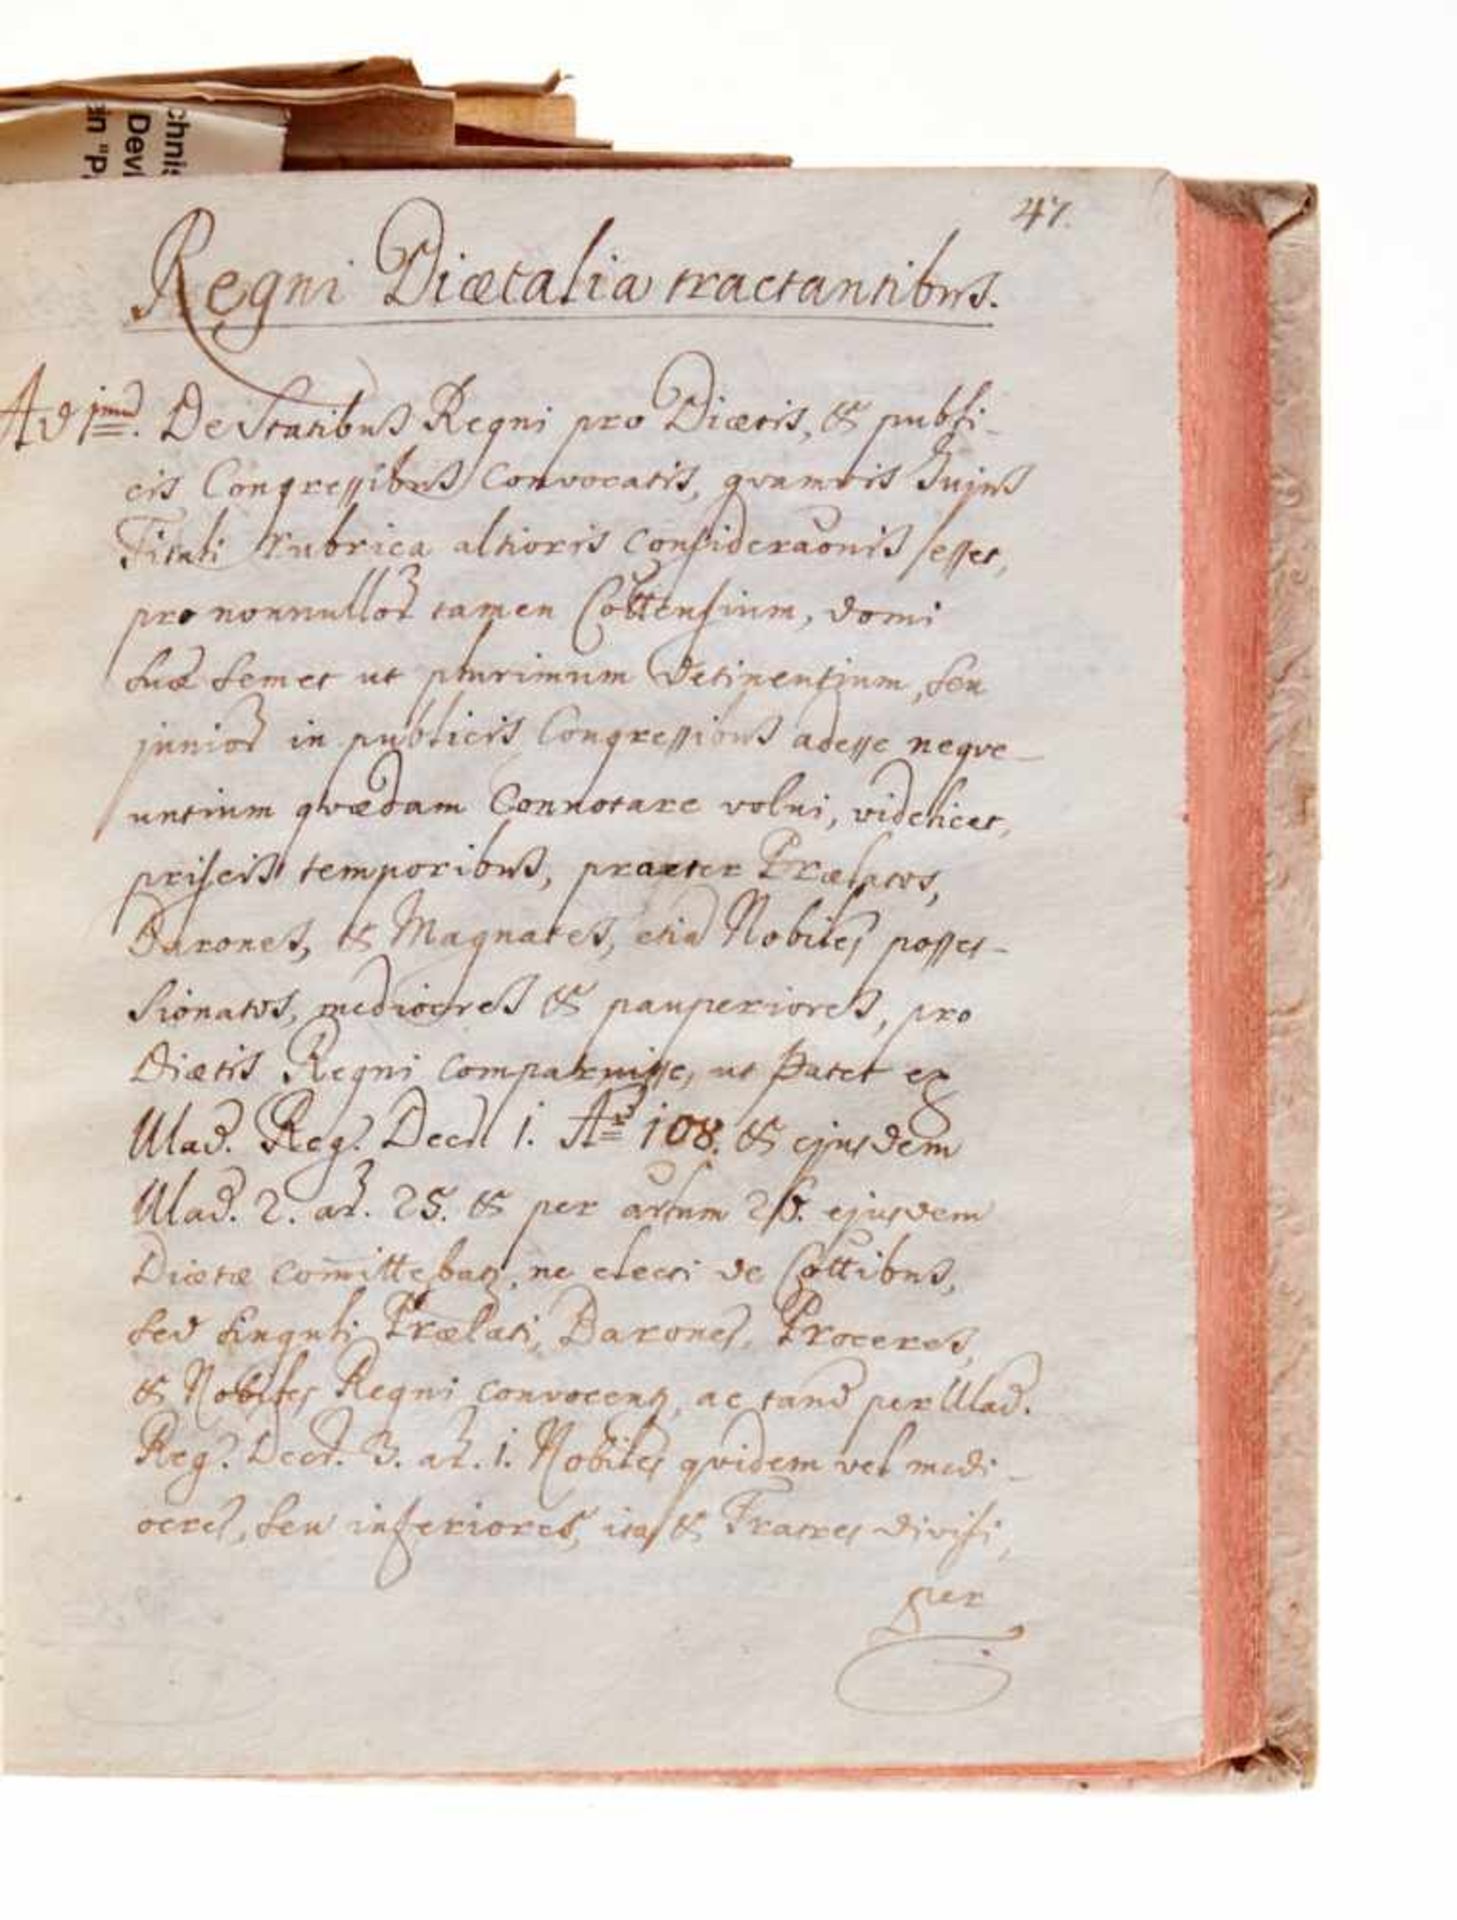 chnis
Devi
in "P.
47.
Regni Diætalia tractantibus.
Ad 1mũ. De Statibus Regni pro Diætis, & publi-
cis Congressibus Convocatis, quamvis hujus
Tituli rubrica altioris Consideraõnis esset,
pro nonnullor̃ tamen Cottensium, domi
suæ semet ut plurimum detinentium, seu
junior̃ in publicis Congressibus adesse neque-
untium quædam Connotare volui, videlicet,
priscis temporibus, praeter Prælatos,
Barones, & Magnates, etiã Nobiles posses-
sionatos, mediocres & pauperiores, pro
Diætis Regni comparuisse, ut patet ex
Ulad. Reg. Decr. 1. Ar. 108. & ejusdem
Ulad. 2. ar. 25. & per artum ejusdem
Diætæ com̃ittebat, ne electi de Cottibus,
sed singuli Prælati, Barones, Proceres,
& Nobiles Regni convocent, ac tand per Ulad.
Reg. Decr. 3. ar. 1. Nobiles quidem vel medi-
ocres, seu inferiores, ita & Fratres divisi,
per